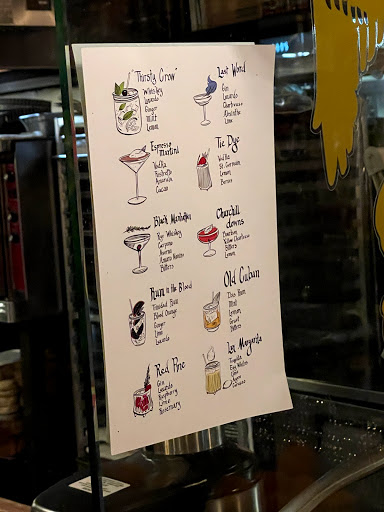 "Thirsty Crow"
Whiskey
Lavender
Ginger
Mint
Lemon
Last Word
Gin
Luxardo
Chartreuse
Absinthe
Lime
Espresso Martini
Vodka
Ristretto
Amarula
Cacao
Tie Dye
Vodka
St. Germain
Lemon
Berries
Black Manhattan
Rye Whiskey
Carpano
Averna
Amaro
Bitters
Churchill Downs
Bourbon
Yellow Chartreuse
Bitters
Lemon
Rum in the Blood
Trinidad Rum
Blood Orange
Ginger
Lime
Luxardo
Old Cuban
Rum
Mint
Lemon
Bitters
Red Pine
Gin
Luxardo
Raspberry
Lime
Rosemary
Margarita
Tequila
Egg Whites